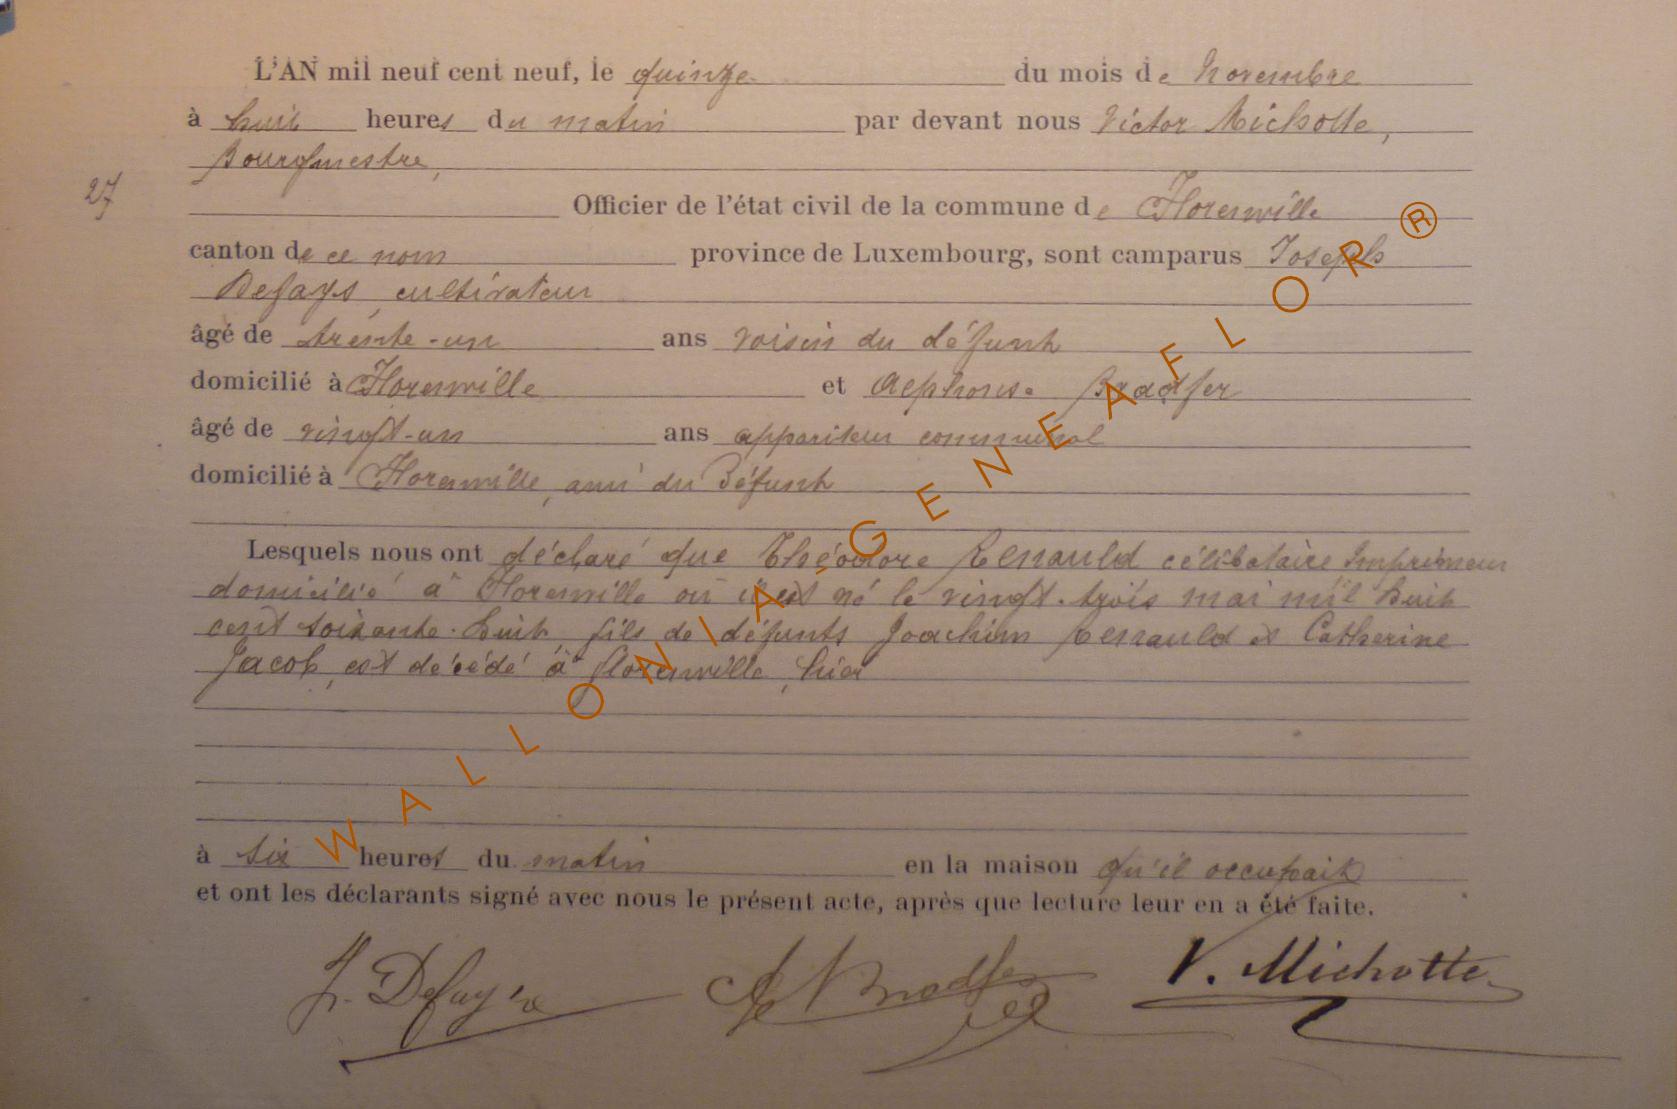 L'AN mil neuf cent neuf, le quinze du mois de Novembre
à huit heures du matin par devant nous Victor Michotte,
Bourgmestre,
27
Officier de l'état civil de la commune de Florenville
canton de ce nom province de Luxembourg, sont camparus Joseph
Defays, cultivateur
âgé de trente-un ans voisin du défunt
domicilié à Florenville et Alphonse Bradfer
âgé de vingt-un ans appariteur communal
domicilié à Florenville, ami du Défunt
Lesquels nous ont déclaré que Théodore Renauld célibataire Imprimeur
domicilié à Florenville où il est né le vingt-trois mai mil huit
cent soixante-huit fils de défunts Joachim Renauld et Catherine
Jacob, est décédé à Florenville, hier
à six heures du matin en la maison qu'il occupait
et ont les déclarants signé avec nous le présent acte, après que lecture leur en a été faite.
J. Defays Al Bradfer V. Michotte
WALLONIA-GENEAFLOR®